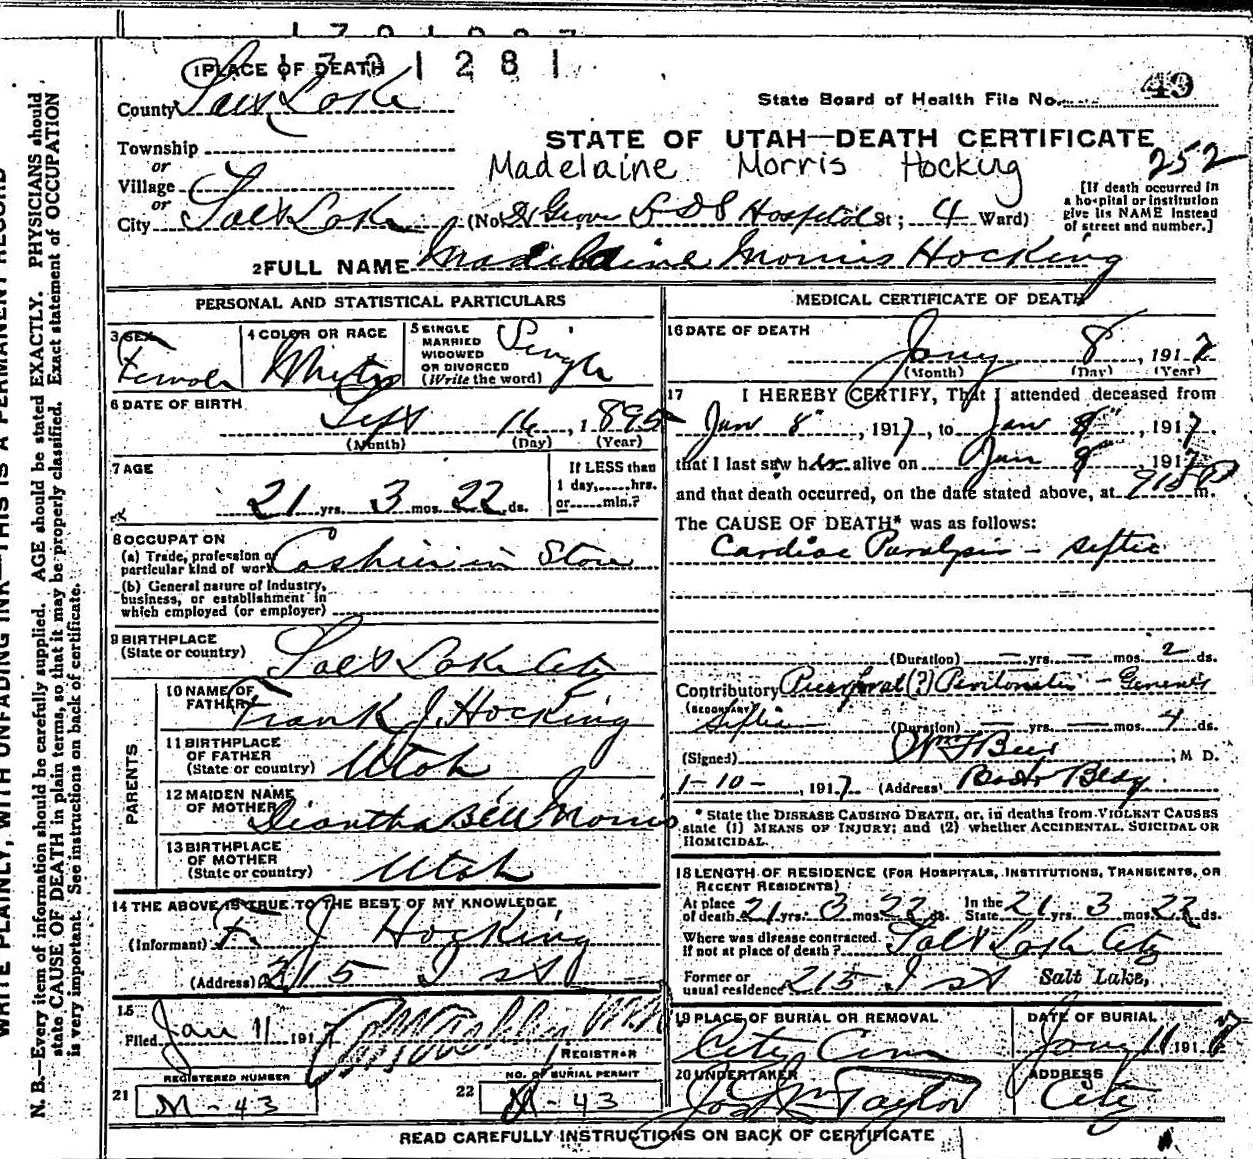 1281
1 PLACE OF DEATH
County Salt Lake
State Board of Health File No. 49
STATE OF UTAH—DEATH CERTIFICATE
Township
or
Village
or
City Salt Lake
Madelaine Morris Hocking
252
(No. Groves L D S Hospital St; 4 Ward)
[If death occurred in a hospital or institution give its NAME instead of street and number.]
2 FULL NAME Madelaine Morris Hocking
PERSONAL AND STATISTICAL PARTICULARS
3 SEX Female
4 COLOR OR RACE White
5 SINGLE MARRIED WIDOWED OR DIVORCED (Write the word) Single
6 DATE OF BIRTH
Sept 16, 1895
(Month) (Day) (Year)
7 AGE
21 yrs. 3 mos. 22 ds.
If LESS than 1 day,......hrs. or......min.?
8 OCCUPATION
(a) Trade, profession or particular kind of work Cashier in Store
(b) General nature of Industry, business, or establishment in which employed (or employer)
9 BIRTHPLACE (State or country) Salt Lake City
PARENTS
10 NAME OF FATHER Frank J. Hocking
11 BIRTHPLACE OF FATHER (State or country) Utah
12 MAIDEN NAME OF MOTHER Diantha Bell Morris
13 BIRTHPLACE OF MOTHER (State or country) Utah
14 THE ABOVE IS TRUE TO THE BEST OF MY KNOWLEDGE
(Informant) F. J Hocking
(Address) 215 I st
15
Filed Jan 11 1917
REGISTRAR
REGISTERED NUMBER
21 M-43
NO. OF BURIAL PERMIT
22 M-43
MEDICAL CERTIFICATE OF DEATH
16 DATE OF DEATH
Jany 8, 1917
(Month) (Day) (Year)
17 I HEREBY CERTIFY, That I attended deceased from
Jan 8, 1917, to Jan 8, 1917,
that I last saw her alive on Jan 8 1917
and that death occurred, on the date stated above, at 915 P m.
The CAUSE OF DEATH* was as follows:
Cardiac Paralysis - septic
(Duration) — yrs. — mos. 2 ds.
Contributory Puerperal (?) Peritonitis - Genesis
(SECONDARY) Septic (Duration) — yrs. — mos. 4 ds.
(Signed) Wm F Beer, M D.
1-10-, 1917 (Address) Bldg.
* State the DISEASE CAUSING DEATH, or, in deaths from VIOLENT CAUSES state (1) MEANS OF INJURY; and (2) whether ACCIDENTAL, SUICIDAL OR HOMICIDAL.
18 LENGTH OF RESIDENCE (FOR HOSPITALS, INSTITUTIONS, TRANSIENTS, OR RECENT RESIDENTS)
At place of death 21 yrs. 3 mos. 22 ds. In the State 21 yrs. 3 mos. 22 ds.
Where was disease contracted, if not at place of death? Salt Lake City
Former or usual residence 215 I st Salt Lake,
19 PLACE OF BURIAL OR REMOVAL City Cem
DATE OF BURIAL Jany 11 1917
20 UNDERTAKER Jos Wm Taylor
ADDRESS City
READ CAREFULLY INSTRUCTIONS ON BACK OF CERTIFICATE
WRITE PLAINLY, WITH UNFADING INK—THIS IS A PERMANENT RECORD
N. B.—Every item of information should be carefully supplied. AGE should be stated EXACTLY. PHYSICIANS should
state CAUSE OF DEATH in plain terms, so that it may be properly classified. Exact statement of OCCUPATION
is very important. See instructions on back of certificate.